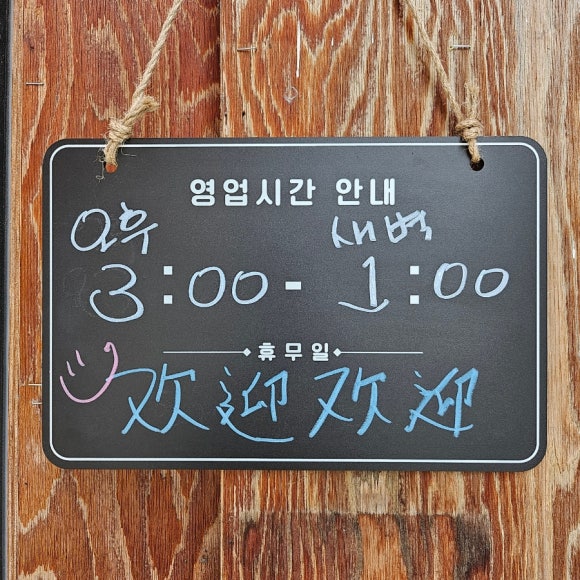 영업시간 안내
오후 새벽
3:00-1:00
휴무일
欢迎欢迎